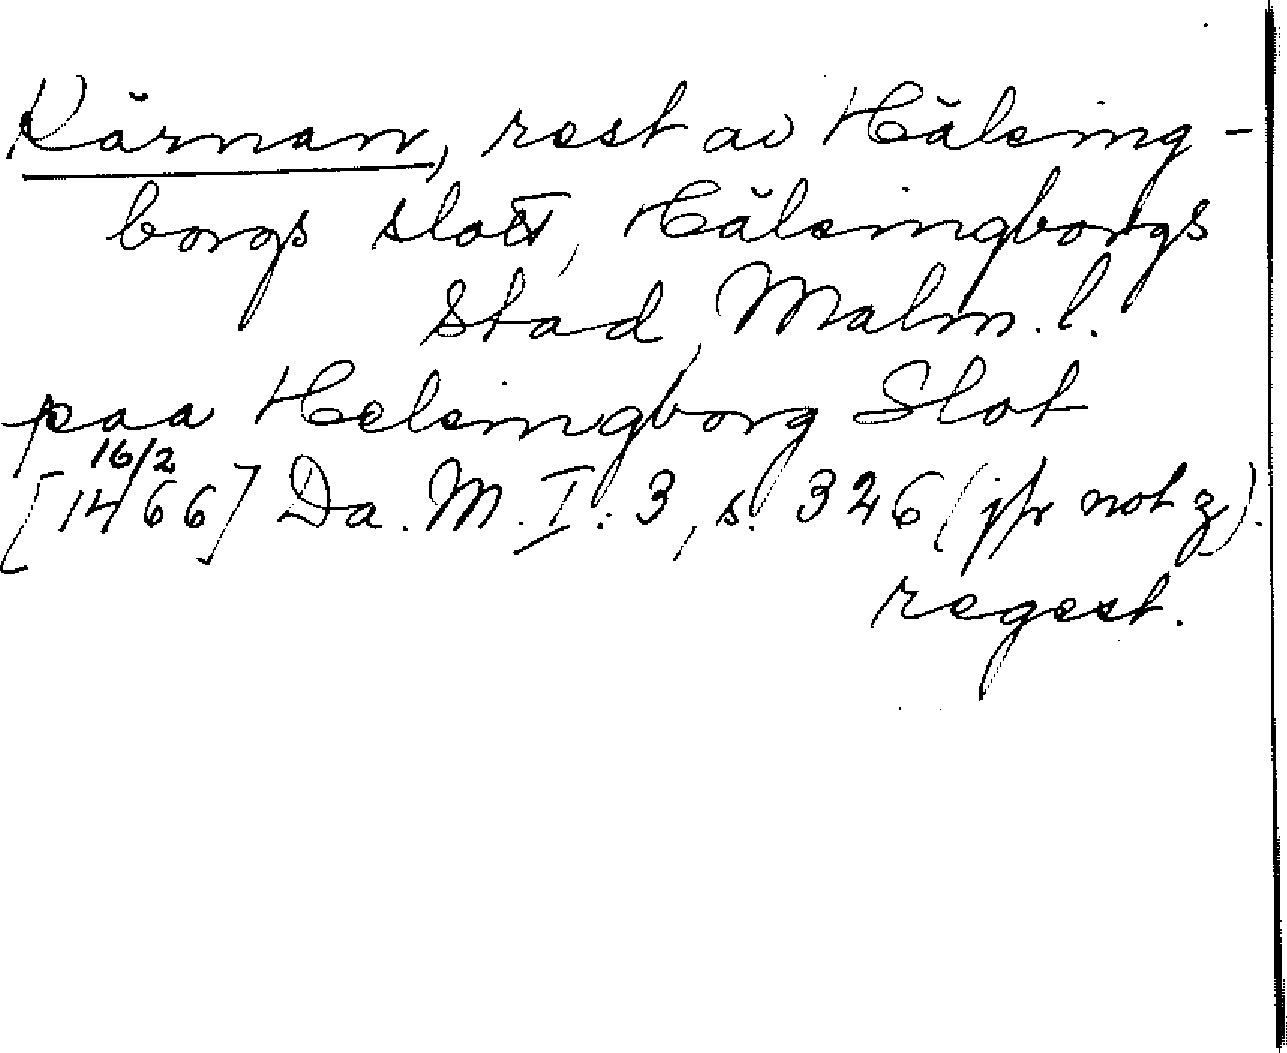 Kärnan, rest av Hälsing-
borgs slott, Hälsingborgs
stad, Malm. l.
paa Helsingborg Slot
16/2
[1466] Da. M. I: 3, s. 326 (jfr not z).
regest.